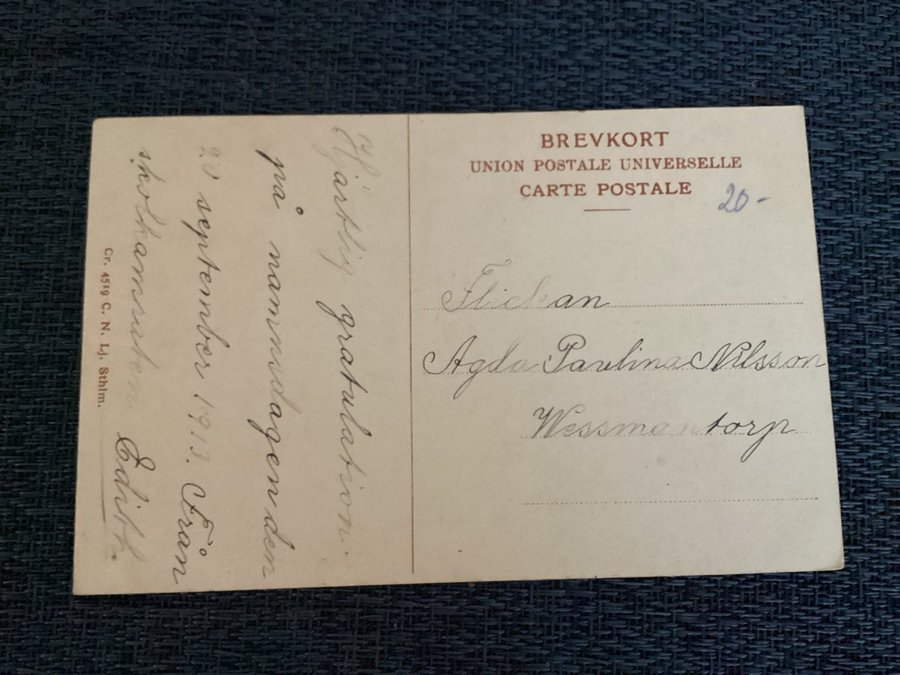 BREVKORT
UNION POSTALE UNIVERSELLE
CARTE POSTALE
20-
Flickan
Agda Paulina Nilsson
Wessmantorp
Hjärtlig gratulation
på namnsdagen den
20 september 1913. Från
skolkamraten Edith.
Cr. 4519 C. N. Lj. Sthlm.